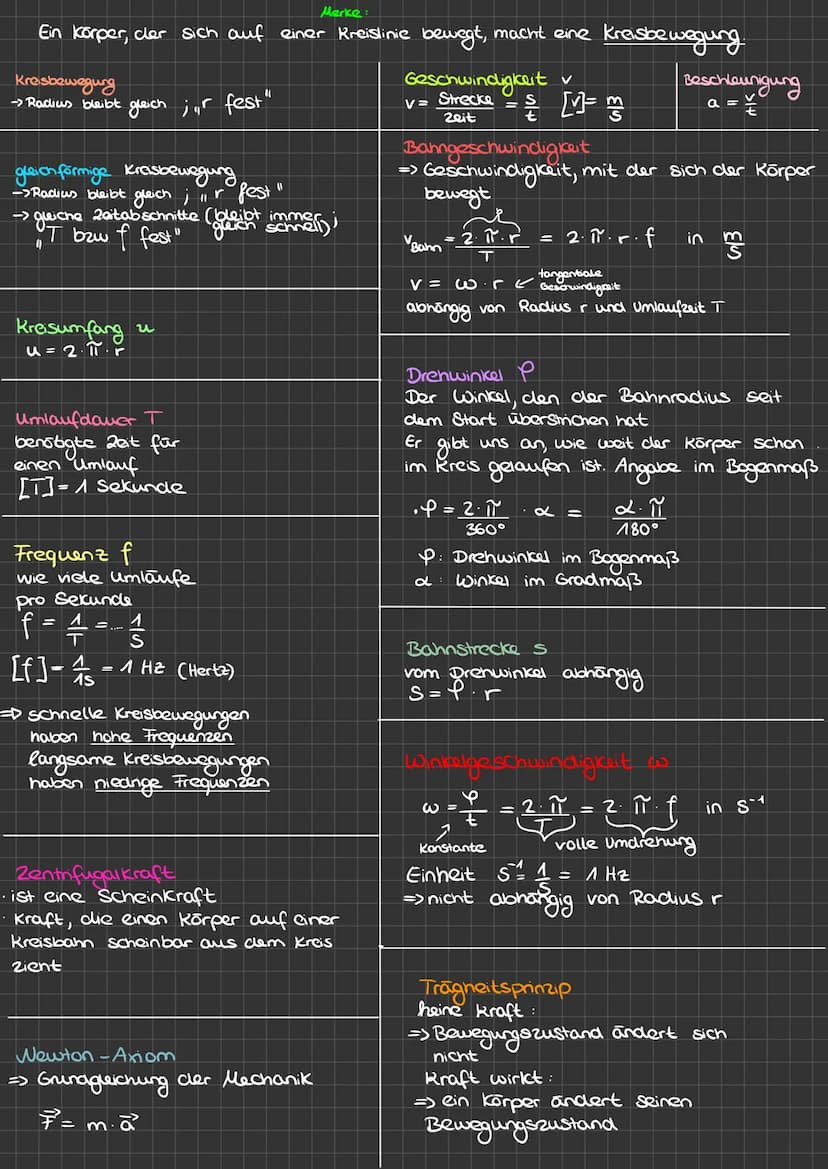 Merke:
Ein Körper, der sich auf einer Kreislinie bewegt, macht eine Kreisbewegung.
Kreisbewegung
→ Radius bleibt gleich ; „r fest"
gleichförmige Kreisbewegung
→ Radius bleibt gleich ; „r fest"
→ gleiche Zeitabschnitte (bleibt immer gleich schnell) ;
„T bzw f fest"
Kreisumfang u
u = 2·π·r
Umlaufdauer T
benötigte Zeit für
einen Umlauf
[T] = 1 Sekunde
Frequenz f
wie viele Umläufe
pro Sekunde
f = 1/T = … 1/s
[f] = 1/1s = 1 Hz (Hertz)
⇒ schnelle Kreisbewegungen
haben hohe Frequenzen
langsame Kreisbewegungen
haben niedrige Frequenzen
Zentrifugalkraft
· ist eine Scheinkraft
· Kraft, die einen Körper auf einer
Kreisbahn scheinbar aus dem Kreis
zieht
Newton-Axiom
⇒ Grundgleichung der Mechanik
F⃗ = m·a⃗
Geschwindigkeit v
v = Strecke/Zeit = s/t [v] = m/s
Beschleunigung
a = v/t
Bahngeschwindigkeit
⇒ Geschwindigkeit, mit der sich der Körper
bewegt
v Bahn = 2·π·r/T = 2·π·r·f in m/s
v = ω·r ← tangentiale Geschwindigkeit
abhängig von Radius r und Umlaufzeit T
Drehwinkel φ
Der Winkel, den der Bahnradius seit
dem Start überstrichen hat
Er gibt uns an, wie weit der Körper schon
im Kreis gelaufen ist. Angabe im Bogenmaß
·φ = 2·π/360° · α = α·π/180°
φ: Drehwinkel im Bogenmaß
α: Winkel im Gradmaß
Bahnstrecke s
vom Drehwinkel abhängig
s = φ·r
Winkelgeschwindigkeit ω
ω = φ/t = 2·π/T = 2·π·f in s⁻¹
Konstante volle Umdrehung
Einheit s⁻¹ = 1/s = 1 Hz
⇒ nicht abhängig von Radius r
Trägheitsprinzip
keine Kraft :
⇒ Bewegungszustand ändert sich
nicht
Kraft wirkt :
⇒ ein Körper ändert seinen
Bewegungszustand